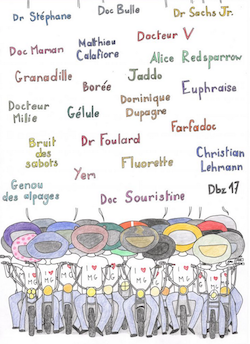 Doc Bulle
Dr Stéphane
Dr Sachs Jr.
Docteur V
Doc Maman
Matthieu
Calafiore
Alice Redsparrow
Granadille
Jaddo
Borée
Euphraise
Docteur
Milie
Gélule
Dominique
Dupagre
Farfadoc
Bruit
des
sabots
Dr Foulard
Christian
Lehmann
Yem
Fluorette
Genou
des alpages
Doc Souristine
Dbz 17
I ♥
MG
I ♥
MG
I ♥
MG
I ♥
MG
I ♥
MG
I ♥
MG